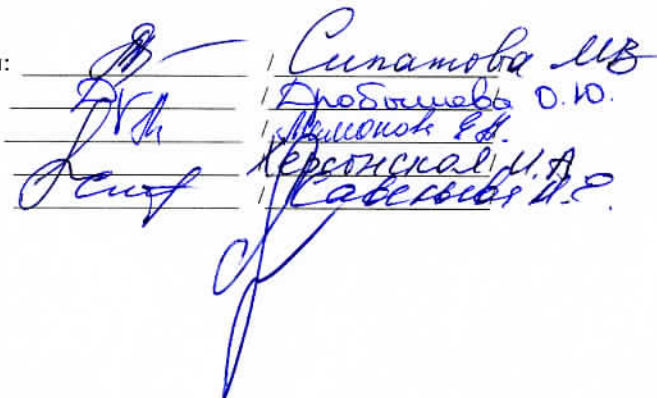 : / Сипатова МВ
/ Дробышева О.Ю.
/ Мамонова Е.Н.
Херсонская И.А.
/ Савельева И.Е.